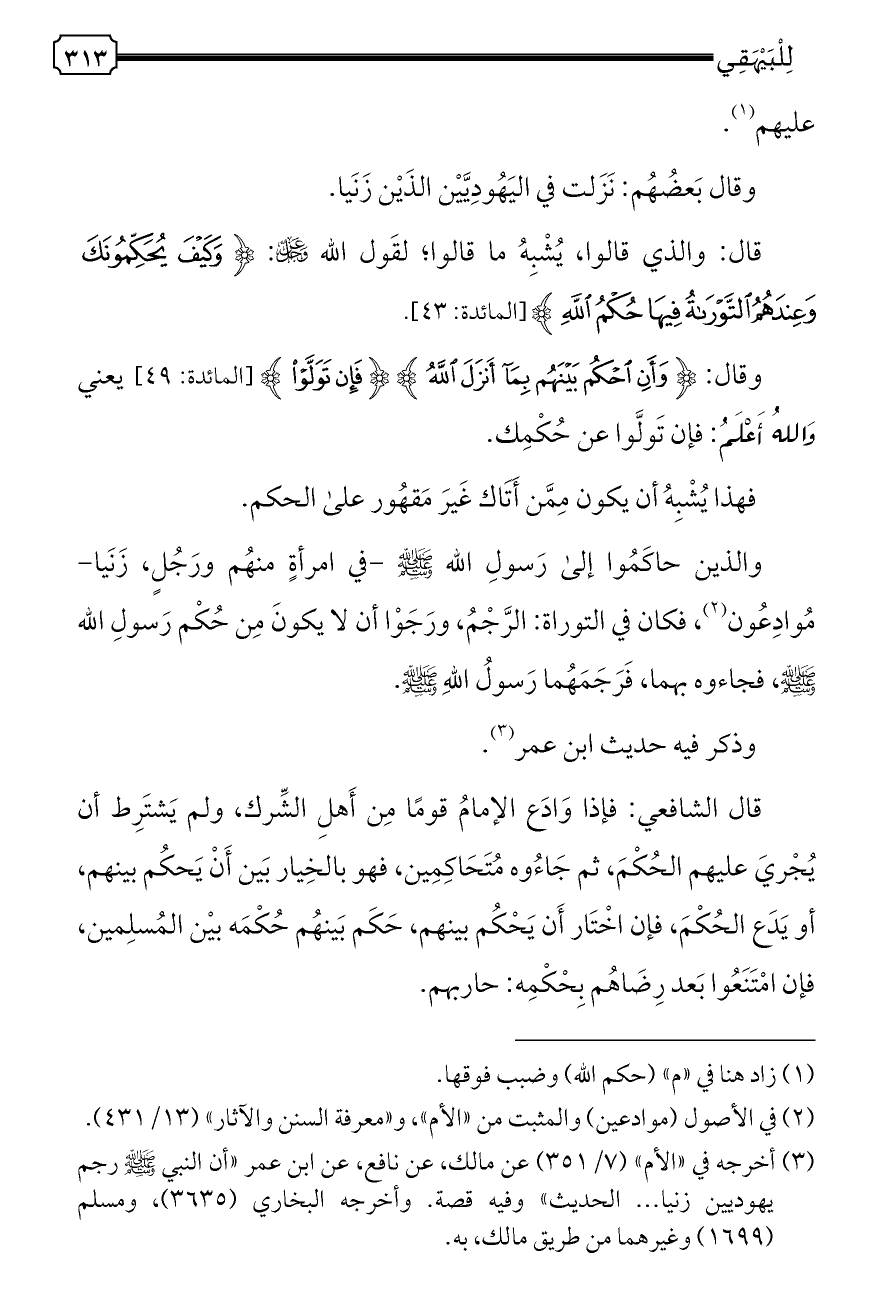 لِلْبَيْهَقِي ٣١٣
عليهم(١).
وقال بَعضُهُم: نَزَلت في اليَهُودِيَّيْن الذَيْن زَنَيا.
قال: والذي قالوا، يُشْبِهُ ما قالوا؛ لقَول الله ﷻ: ﴿ وَكَيْفَ يُحَكِّمُونَكَ
وَعِندَهُمُ ٱلتَّوْرَىٰةُ فِيهَا حُكْمُ ٱللَّهِ ﴾ [المائدة: ٤٣].
وقال: ﴿ وَأَنِ ٱحْكُم بَيْنَهُم بِمَآ أَنزَلَ ٱللَّهُ ﴾ ﴿ فَإِن تَوَلَّوْا۟ ﴾ [المائدة: ٤٩] يعني
وَاللهُ أَعْلَمُ: فإن تَولَّوا عن حُكْمِك.
فهذا يُشْبِهُ أن يكون مِمَّن أَتَاك غَيرَ مَقهُور علىٰ الحكم.
والذين حاكَمُوا إلىٰ رَسولِ الله ﷺ -في امرأةٍ منهُم ورَجُلٍ، زَنَيا-
مُوادِعُون(٢)، فكان في التوراة: الرَّجْمُ، ورَجَوْا أن لا يكونَ مِن حُكْم رَسولِ الله
ﷺ، فجاءوه بهما، فَرَجَمَهُما رَسولُ اللهِ ﷺ.
وذكر فيه حديث ابن عمر(٣).
قال الشافعي: فإذا وَادَع الإمامُ قومًا مِن أَهلِ الشِّرك، ولم يَشتَرِط أن
يُجْريَ عليهم الحُكْمَ، ثم جَاءُوه مُتَحَاكِمِين، فهو بالخِيار بَين أَنْ يَحكُم بينهم،
أو يَدَع الحُكْمَ، فإن اخْتَار أَن يَحْكُم بينهم، حَكَم بَينهُم حُكْمَه بيْن المُسلِمين،
فإن امْتَنَعُوا بَعد رِضَاهُم بِحْكْمِه: حاربهم.
(١) زاد هنا في «م» (حكم الله) وضبب فوقها.
(٢) في الأصول (موادعين) والمثبت من «الأم»، و«معرفة السنن والآثار» (١٣/ ٤٣١).
(٣) أخرجه في «الأم» (٧/ ٣٥١) عن مالك، عن نافع، عن ابن عمر «أن النبي ﷺ رجم
يهوديين زنيا... الحديث» وفيه قصة. وأخرجه البخاري (٣٦٣٥)، ومسلم
(١٦٩٩) وغيرهما من طريق مالك، به.